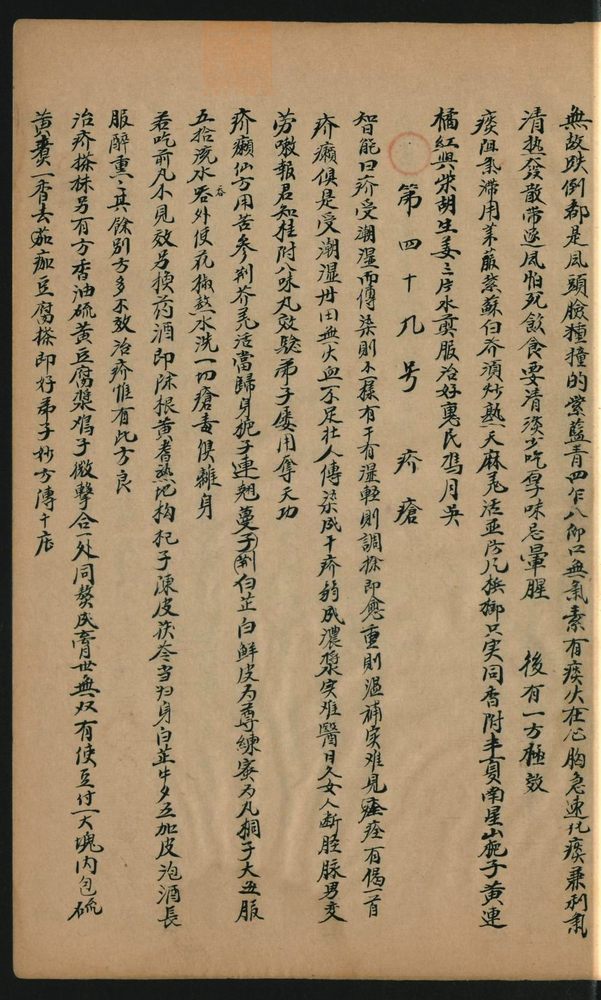 無故跌倒都是風頭臉種撞的紫藍青四乍八仰口無氣素有痰火在心胸急速化痰兼利氣
清热發散带逐風怕死飲食要清淡少吃厚味忌暈腥　後有一方極效
痰阻氣滯用莱菔蘇白芥須炒熟天麻羌活並防風梹榔只实同香附半夏南星山梔子黄連
橘紅與柴胡生姜三片水煎服治好惠民馮月吳
第四十九号　疥瘡
智能曰疥受潮湿而傳染則不一樣有干有湿輕則調搽即愈重則温補实难見痊有偈一首
疥癩俱是受潮湿丹田無火血不足壮人傳染成干疥弱成濃漿实难醫日久女人断脛脉男变
劳嗽報君知桂附八味丸效驗弟子屡用奪天功
疥癩仙方用苦参荆芥羌活當歸身梔子連翹蔓子荆白芷白鮮皮为尊練蜜为丸桐子大五服
五拾流水吞外使花椒熬水洗一切瘡毒俱離身
若吃前丸不見效另換药酒即除根黄耆熟地枸杞子陳皮茯苓当归身白芷牛夕五加皮泡酒長
服醉熏々其餘别方多不效治疥惟有此方良
治疥搽抹另有方香油硫黄豆腐漿鸡子微擊合一处同熬成膏世無双有使豆付一大塊内包硫
黄賣一香去茄茄豆腐搽即好弟子妙方傳十店